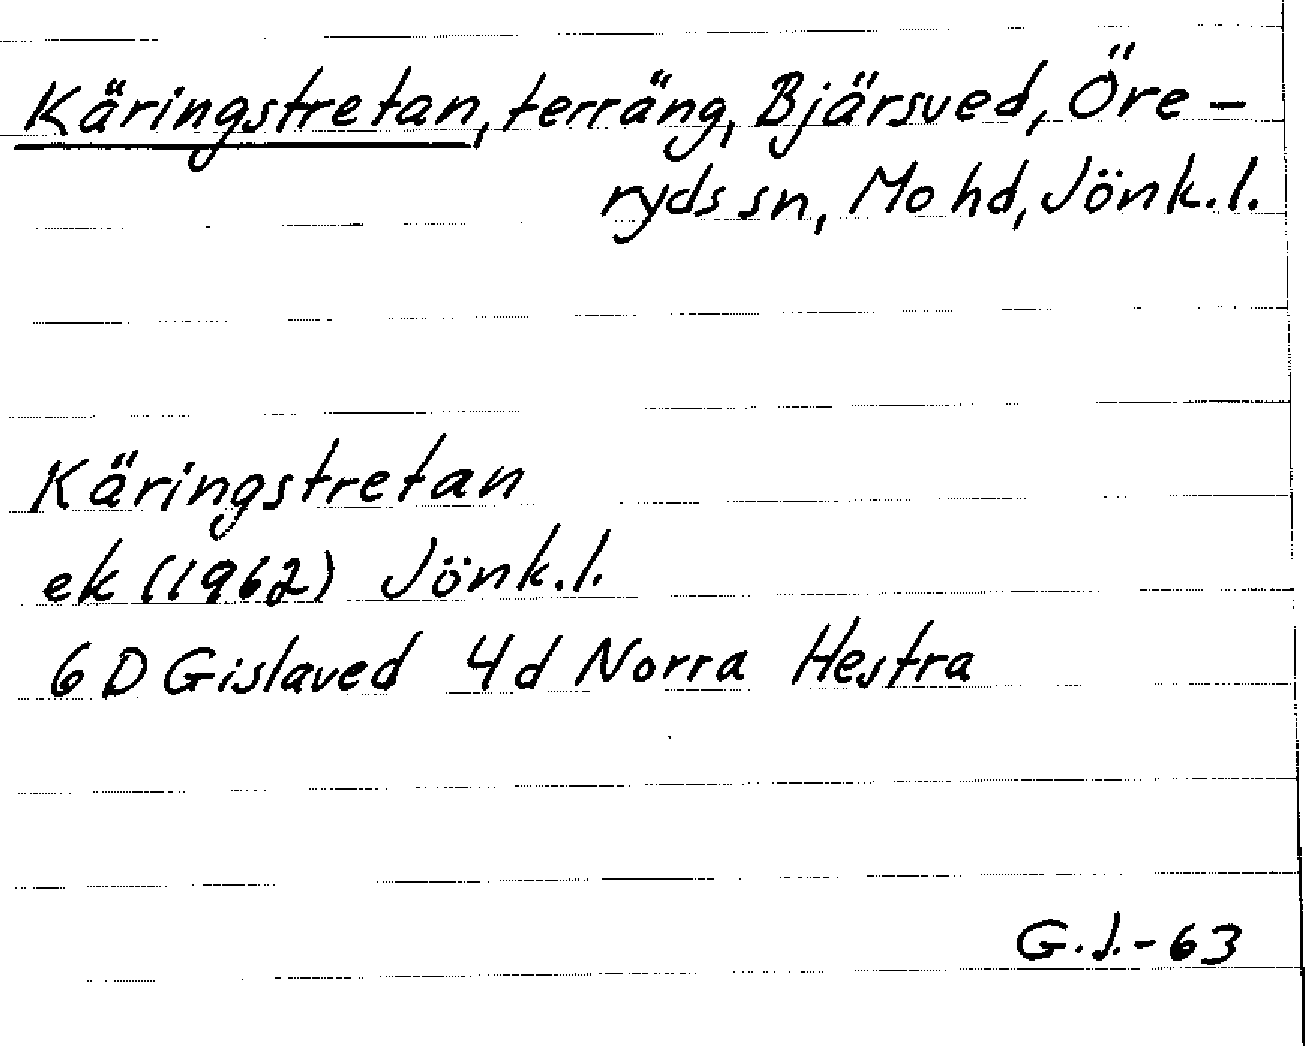 Käringstretan, terräng, Bjärsved, Öre-
ryds sn, Mo hd, Jönk.l.
Käringstretan
ek (1962) Jönk.l.
6 D Gislaved 4d Norra Hestra
G.J.-63